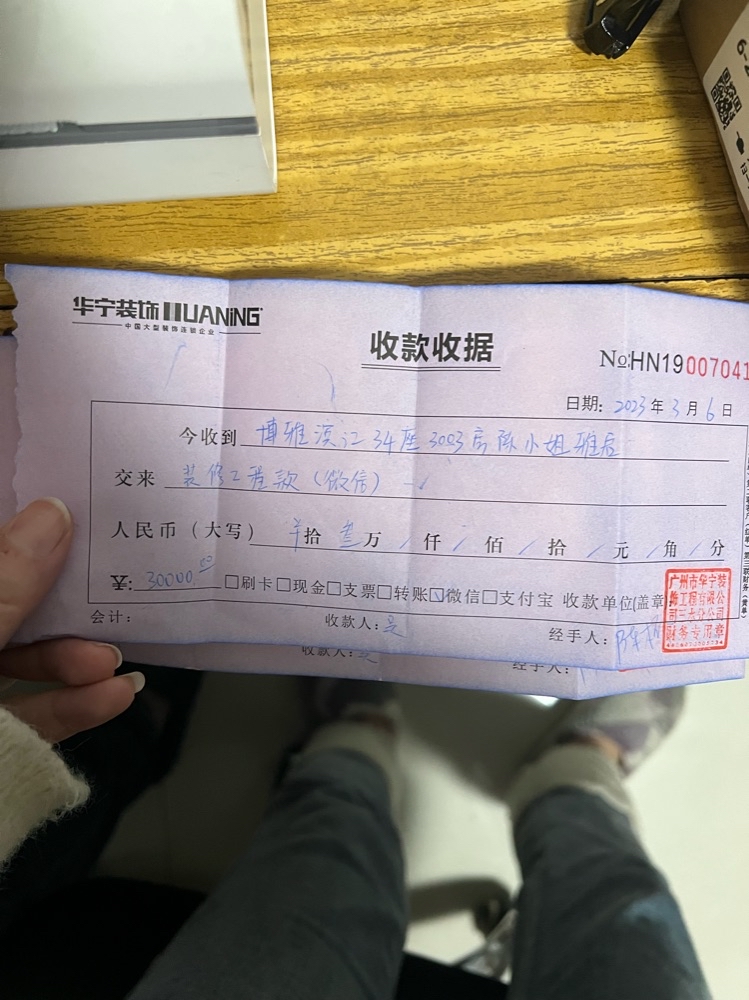 华宁装饰 HUANING
中国大型装饰连锁企业
收款收据
No:HN19007041
日期: 2023年3月6日
今收到 博雅滨江34座3003房陈小姐雅居
交来 装修工程款(微信)
人民币(大写) 拾 叁万 / 仟 / 佰 / 拾 / 元 / 角 / 分
¥: 30000.00 □刷卡□现金□支票□转账☑微信□支付宝 收款单位(盖章
广州市华宁装
饰工程有限公
司三水分公司
财务专用章
会计: 收款人: 经手人: 陈
收款人: 经手人:
6-2